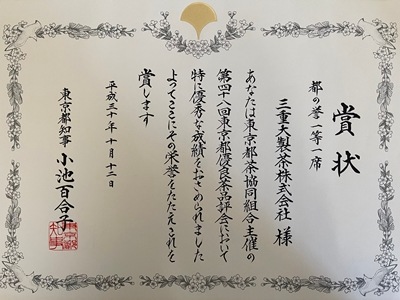 賞状
都の誉一等一席
三重大製茶株式会社 様
あなたは東京都茶協同組合主催の
第四十八回東京都優良茶品評会において
特に優秀な成績をおさめられました
よってここにその栄誉をたたえこれを
賞します
平成三十年十月十二日
東京都知事 小池百合子